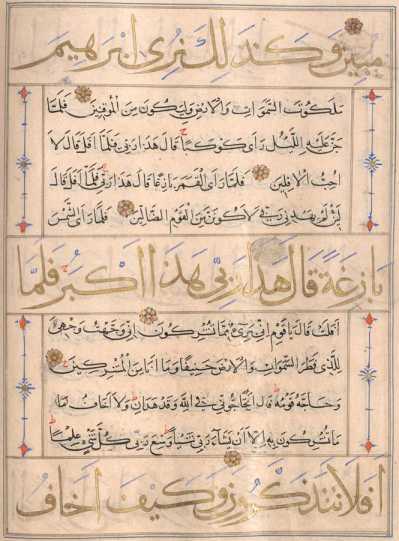 مبين وكذلك نرى ابرهيم
ملكوت السموات والارض وليكون من الموقنين فلما
جن عليه الليل رأى كوكبا قال هذا ربى فلما افل قال لا
احب الافلين فلما رأى القمر بازغا قال هذا ربى فلما افل قال
لئن لم يهدنى ربى لاكونن من القوم الضالين فلما رأى الشمس
بازغة قال هذا ربى هذا اكبر فلما
افلت قال يا قوم انى برىء مما تشركون انى وجهت وجهى
للذى فطر السموات والارض حنيفا وما انا من المشركين
وحاجه قومه قال اتحاجونى فى الله وقد هدان ولا اخاف ما
ما تشركون به الا ان يشاء ربى شيئا وسع ربى كل شىء علما
افلا تتذكرون وكيف اخاف